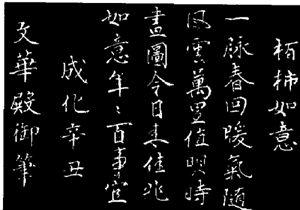 柏柿如意
一脉春回暖氣随
風雲萬里值明時
畫圖今日来佳兆
如意年〻百事宜
成化辛丑
文華殿御筆